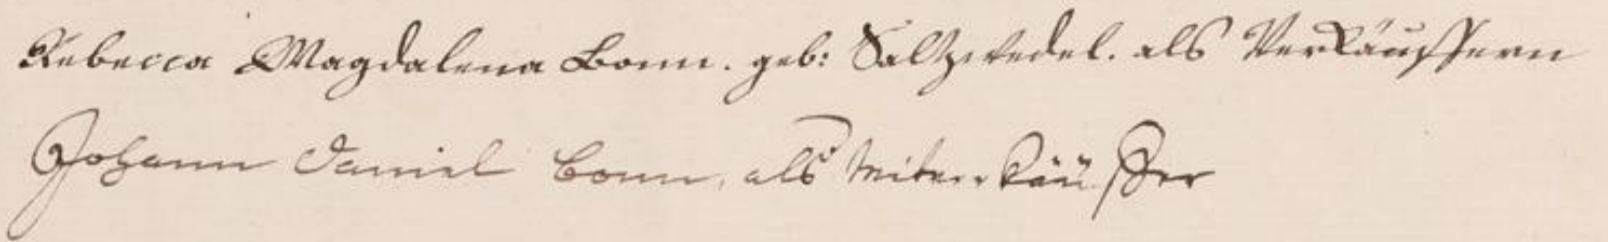 Rebecca Magdalena Bonn. geb: Saltzwedel. als Verkäuffern
Johann Daniel Bonn, als Mitverkäuffer